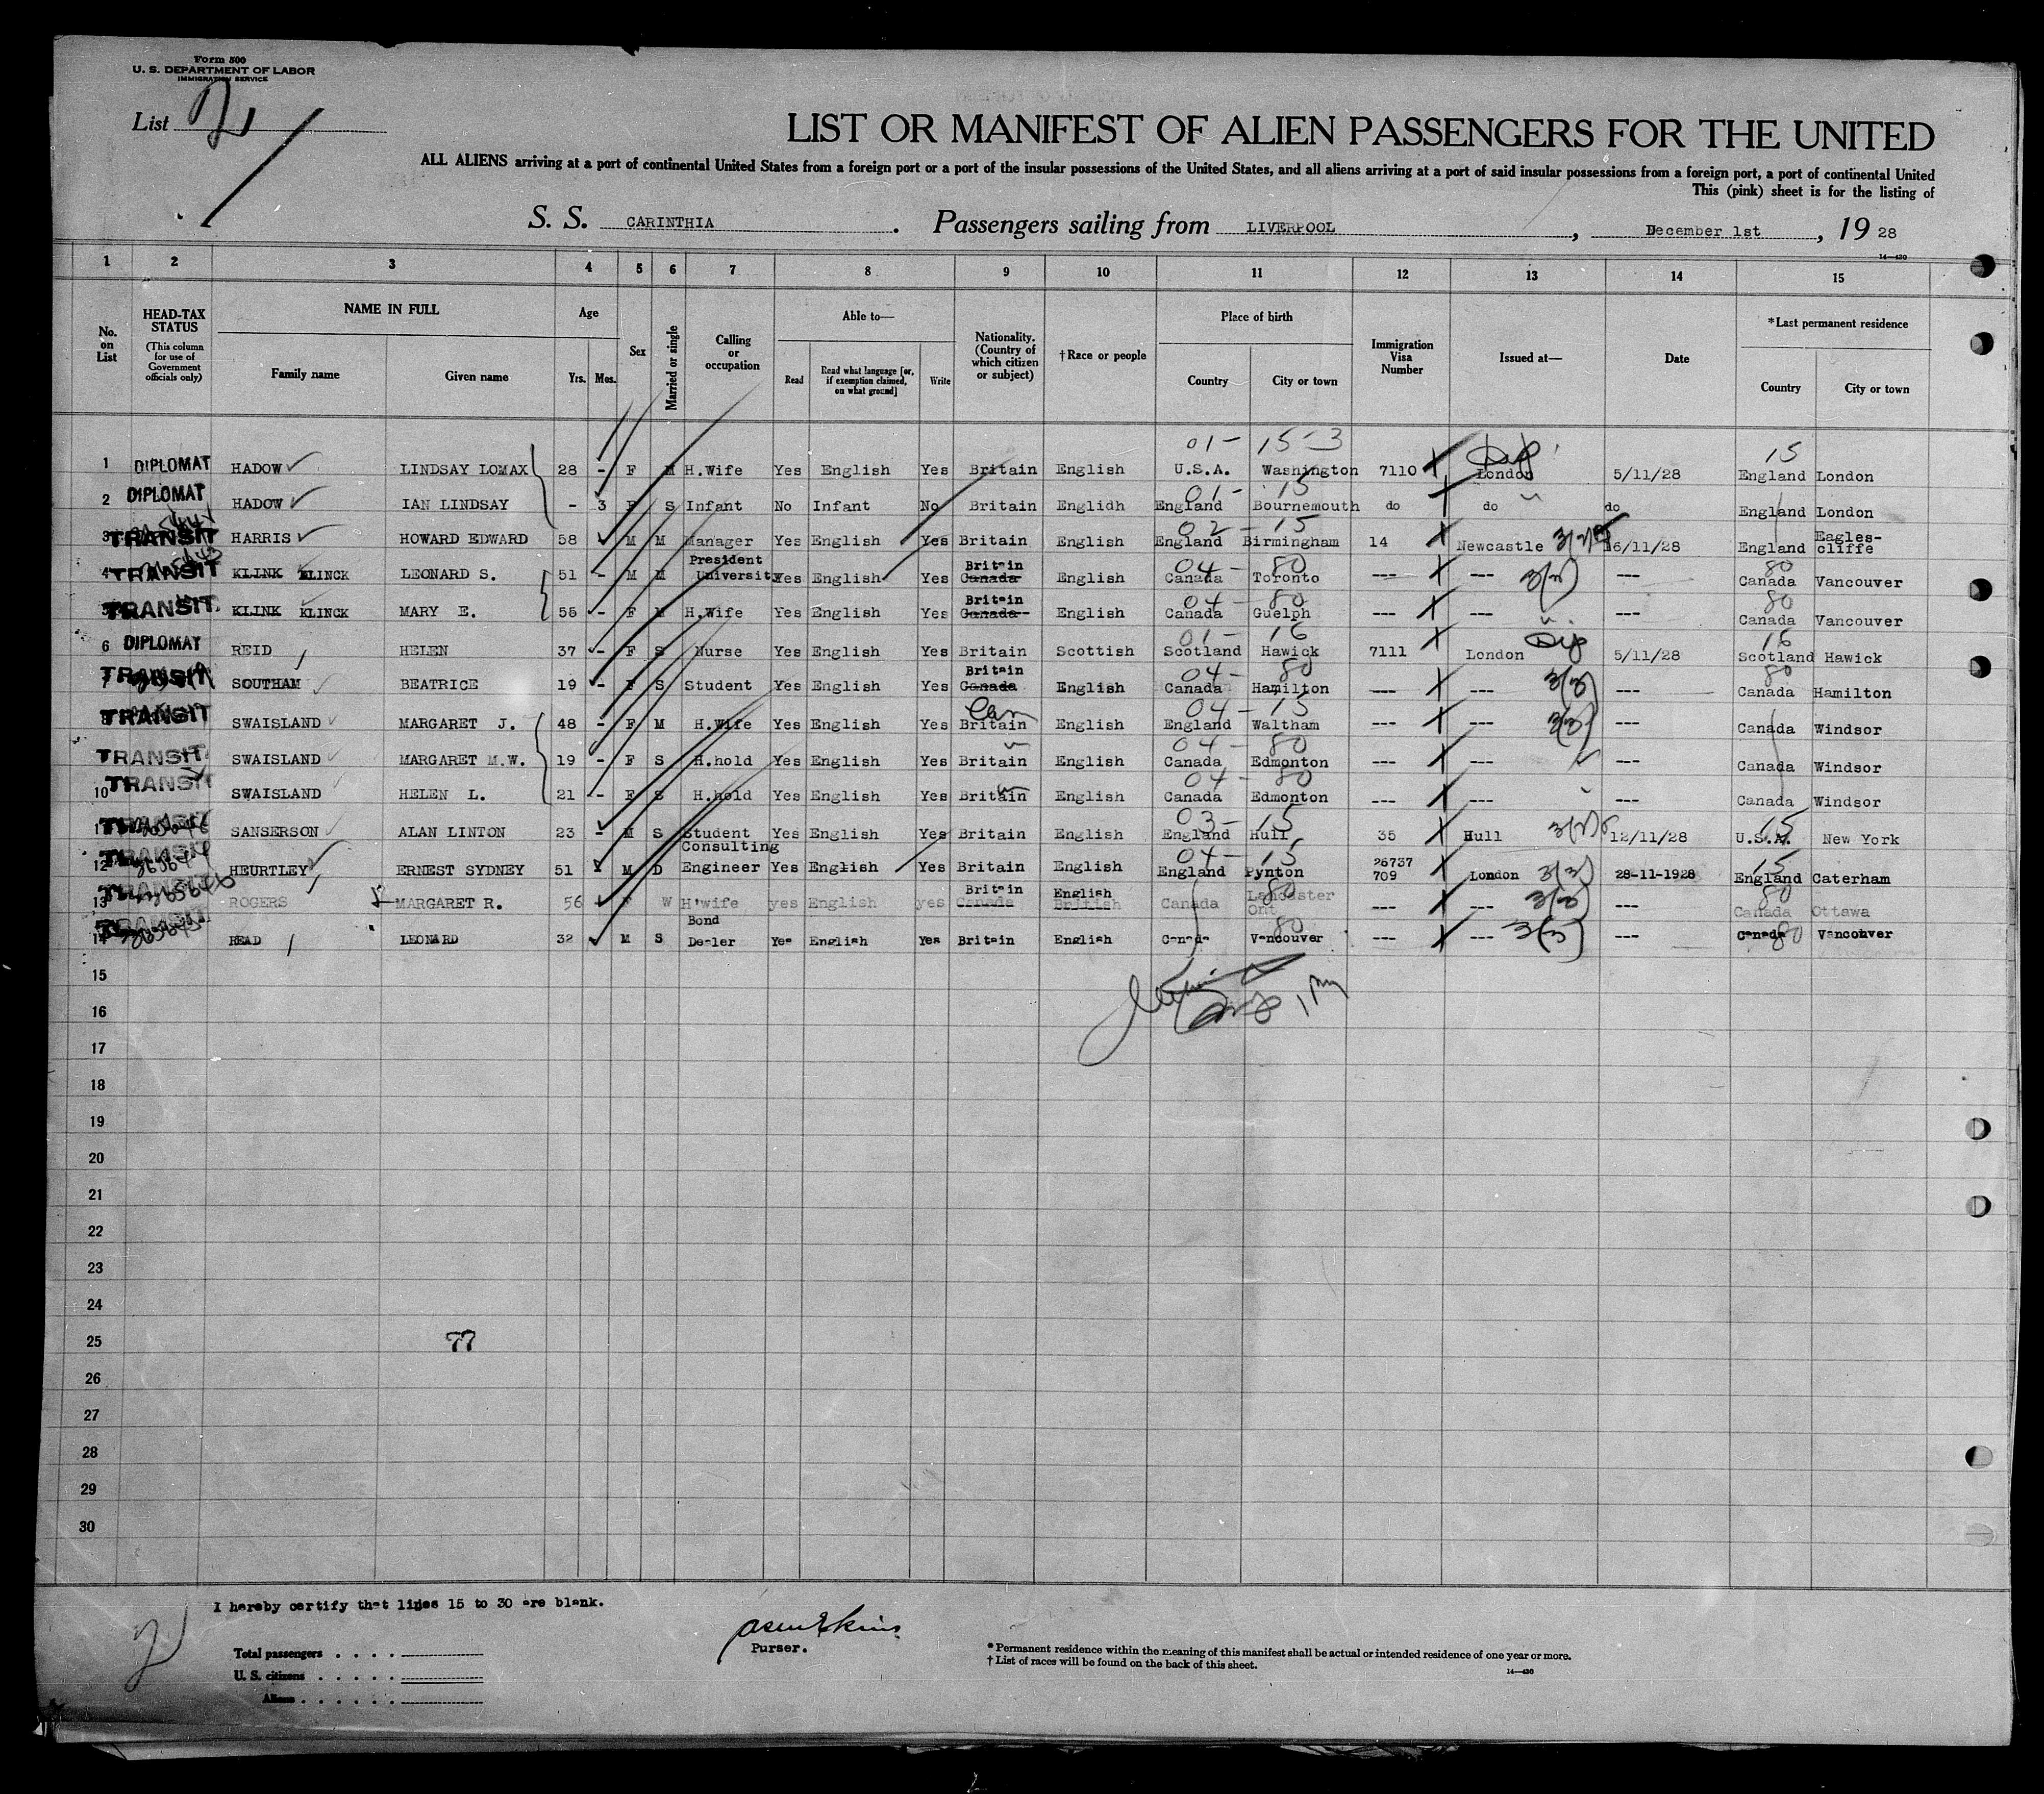 Form 500
U. S. DEPARTMENT OF LABOR
IMMIGRATION SERVICE
List 2
LIST OR MANIFEST OF ALIEN PASSENGERS FOR THE UNITED
ALL ALIENS arriving at a port of continental United States from a foreign port or a port of the insular possessions of the United States, and all aliens arriving at a port of said insular possessions from a foreign port, a port of continental United
This (pink) sheet is for the listing of
S. S. CARINTHIA. Passengers sailing from LIVERPOOL, December 1st, 19 28
14—430
1 2 3 4 5 6 7 8 9 10 11 12 13 14 15
No. on List
HEAD-TAX STATUS (This column for use of Government officials only)
NAME IN FULL
Family name Given name
Age
Yrs. Mos.
Sex
Married or single
Calling or occupation
Able to—
Read
Read what language [or, if exemption claimed, on what ground]
Write
Nationality. (Country of which citizen or subject)
†Race or people
Place of birth
Country City or town
Immigration Visa Number
Issued at—
Date
*Last permanent residence
Country City or town
01- 15-3 Dip 15
1 DIPLOMAT HADOW LINDSAY LOMAX 28 - F M H.Wife Yes English Yes Britain English U.S.A. Washington 7110 London 5/11/28 England London
01- 15
2 DIPLOMAT HADOW IAN LINDSAY - 3 S Infant No Infant No Britain Englidh England Bournemouth do do do England London
02-15
3 TRANSIT HARRIS HOWARD EDWARD 58 M M Manager Yes English Yes Britain English England Birmingham 14 Newcastle 16/11/28 England Eagles-cliffe
President Britain 04- 80 3(3) 80
4 TRANSIT KLINK KLINCK LEONARD S. 51 - M M University Yes English Yes Canada English Canada Toronto --- --- --- Canada Vancouver
Britain 04-80 80
5 TRANSIT KLINK KLINCK MARY E. 56 - F M H.Wife Yes English Yes Canada English Canada Guelph --- --- --- Canada Vancouver
01- 16 Dip 16
6 DIPLOMAT REID HELEN 37 - F S Nurse Yes English Yes Britain Scottish Scotland Hawick 7111 London 5/11/28 Scotland Hawick
Britain 04- 80 3(3) 80
TRANSIT SOUTHAM BEATRICE 19 - F S Student Yes English Yes Canada English Canada Hamilton --- --- --- Canada Hamilton
Can 04-15 3(3)
8 TRANSIT SWAISLAND MARGARET J. 48 - F M H.Wife Yes English Yes Britain English England Waltham --- --- --- Canada Windsor
04- 80
TRANSIT SWAISLAND MARGARET M.W. 19 - F S H.hold Yes English Yes Britain English Canada Edmonton --- --- --- Canada Windsor
04- 80
10 TRANSIT SWAISLAND HELEN L. 21 - F S H.hold Yes English Yes Britain English Canada Edmonton --- --- --- Canada Windsor
03-15 15
11 TRANSIT SANSERSON ALAN LINTON 23 - M S Student Yes English Yes Britain English England Hull 35 Hull 12/11/28 U.S.A. New York
Consulting 04-15 26737 3(3) 15
12 TRANSIT HEURTLEY ERNEST SYDNEY 51 M D Engineer Yes English Yes Britain English England Pynton 709 London 28-11-1928 England Caterham
Britain English 80 3(3) 80
13 TRANSIT ROGERS MARGARET R. 56 F W H'wife yes English yes Canada British Canada Lancaster Ont --- --- --- Canada Ottawa
Bond 80 3(3) 80
14 TRANSIT READ LEONARD 32 M S Dealer Yes English Yes Britain English Canada Vancouver --- --- --- Canada Vancouver
15
16
17
18
19
20
21
22
23
24
25 77
26
27
28
29
30
I hereby certify that lines 15 to 30 are blank.
2
Purser.
Total passengers . . . .
U. S. citizens . . . . .
Aliens . . . . . .
* Permanent residence within the meaning of this manifest shall be actual or intended residence of one year or more.
† List of races will be found on the back of this sheet.
14—430